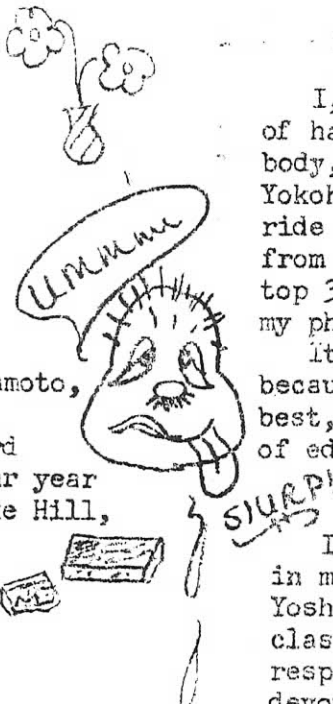 ummmm
amoto,
d
ur year
e Hill,
SlURP
I,
of ha
body,
Yokoh
ride
from
top 3
my ph
It
becau
best,
of ed
I
in m
Yosh
clas
resp
devo